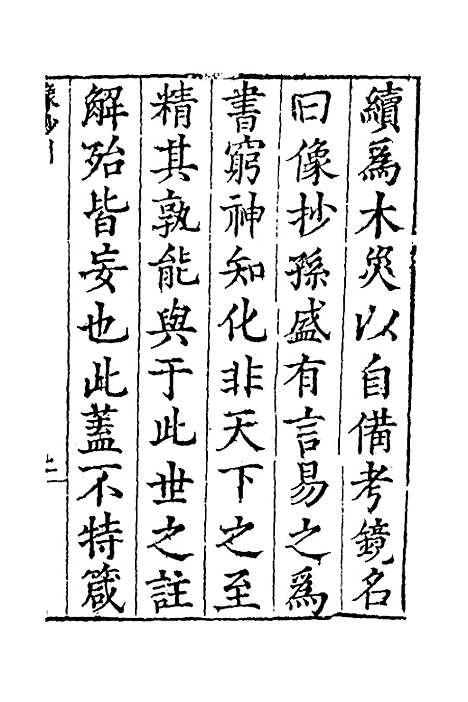 續為木災以自備考鏡名
曰像抄孫盛有言易之為
書窮神知化非天下之至
精其孰能與于此世之註
解殆皆妄也此蓋不特箴